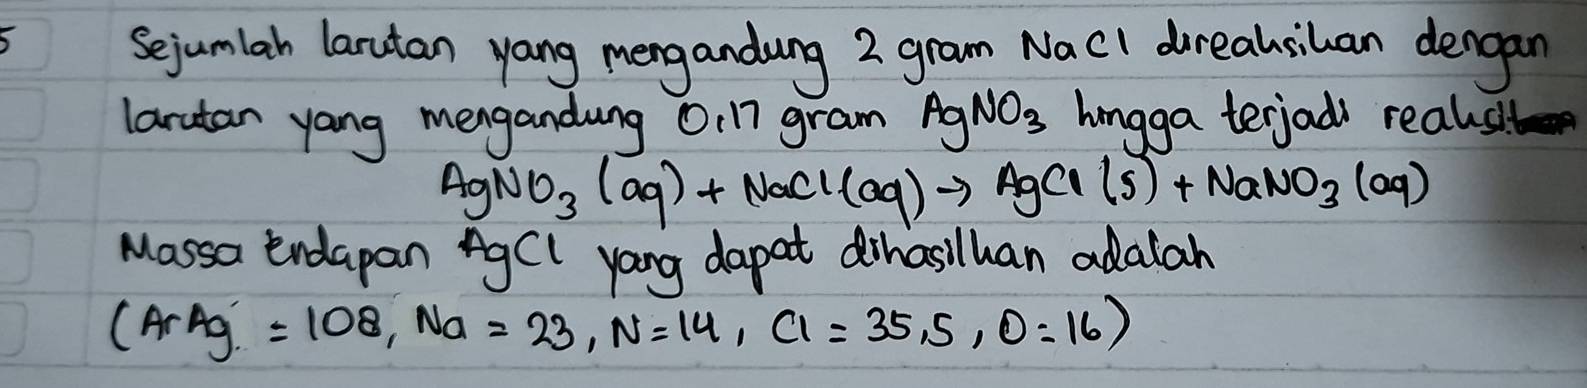 5 Sejumlah larutan yang mengandung 2 gram NaCl direaksikan dengan
larutan yang mengandung 0,17 gram AgNO3 hingga terjadi reaksi
AgNO3 (aq) + NaCl(aq) → AgCl (s) + NaNO3 (aq)
Massa Endapan AgCl yang dapat dihasilkan adalah
(Ar Ag = 108, Na = 23, N = 14, Cl = 35,5, O = 16)